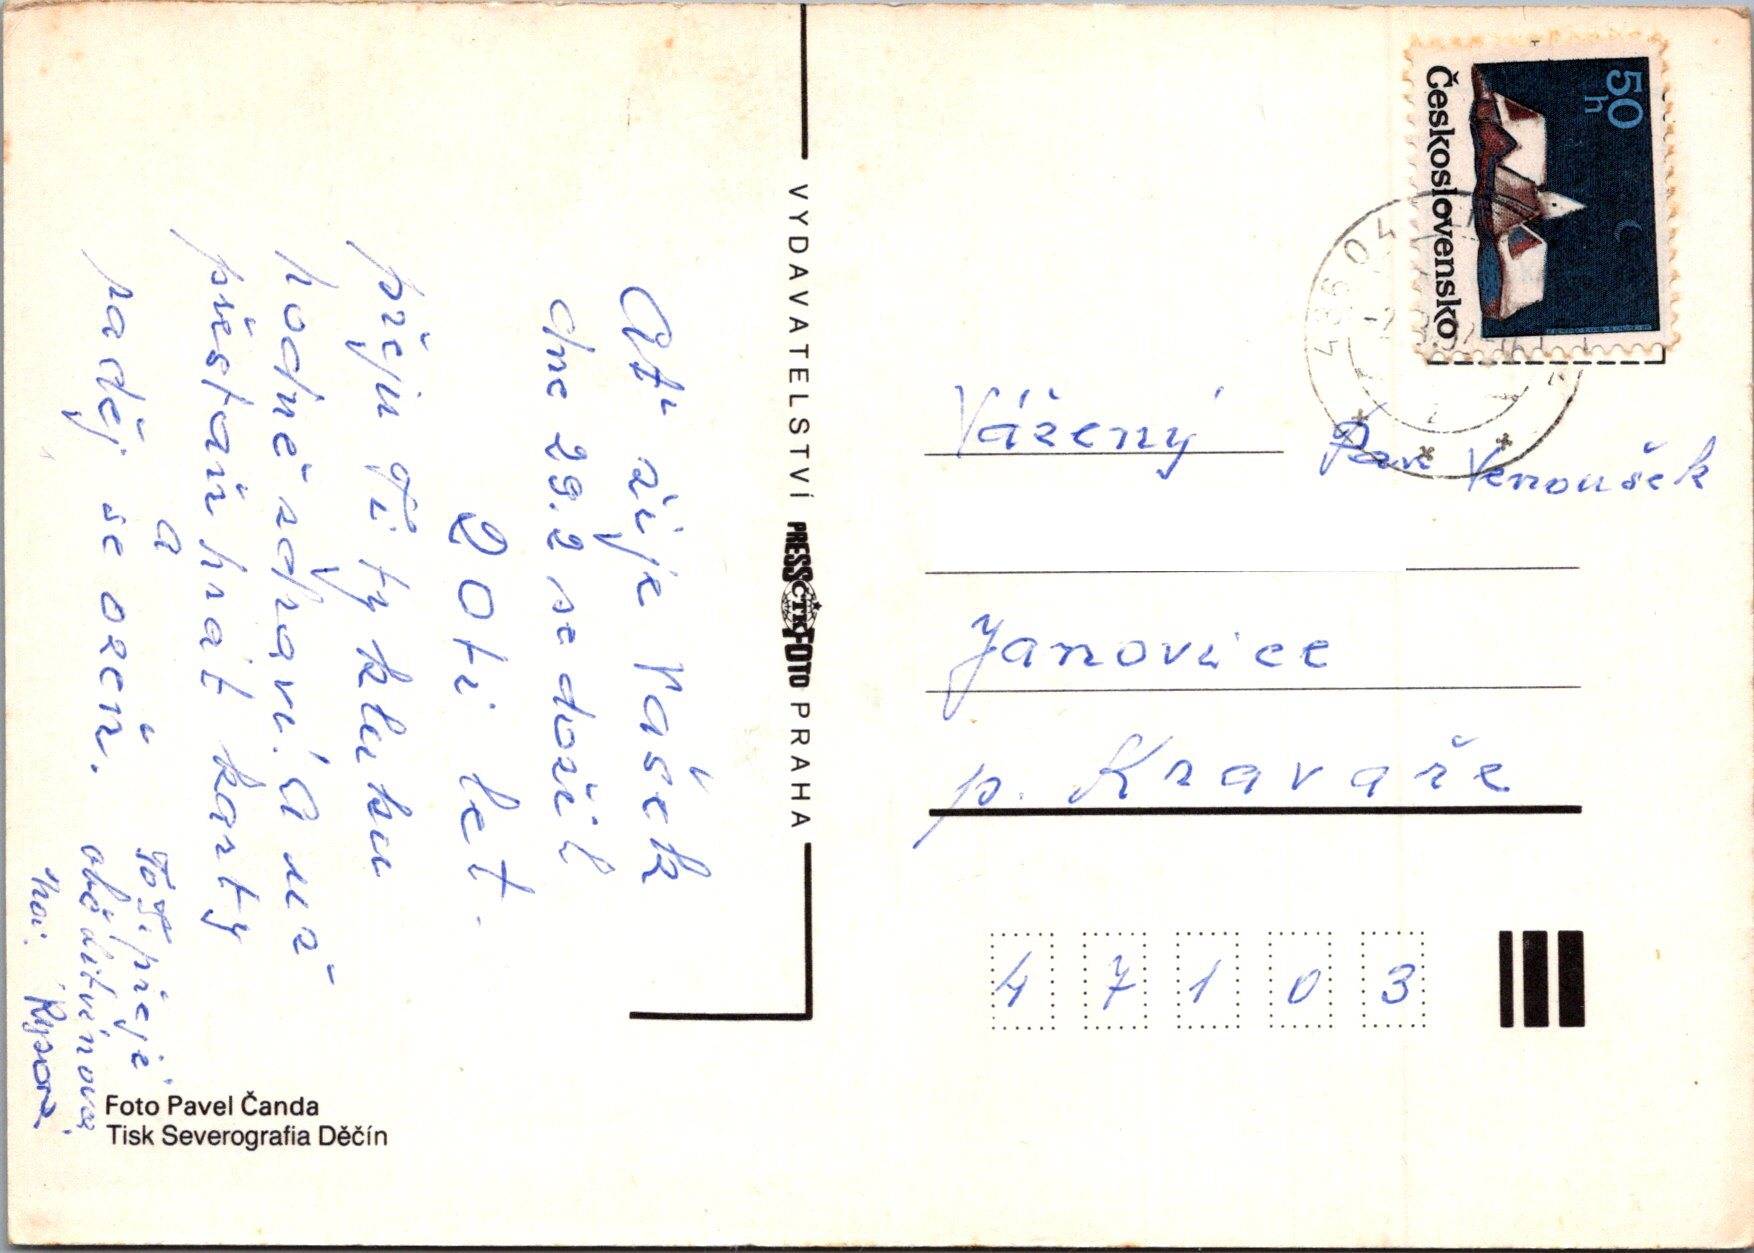 Ať žije Vašek
dne 29.2 se dožil
20ti let.
přeju Ti ty kluku
hodně zdraví. A už
přestaň hrát karty
a
raděj se ožeň.
To Ti přeje
VYDAVATELSTVÍ PRESSFOTO PRAHA
ČTK
Foto Pavel Čanda
Tisk Severografia Děčín
50
h
Československo
43604
Vážený Pan Venoušek
Janovice
p. Kravaře
47103